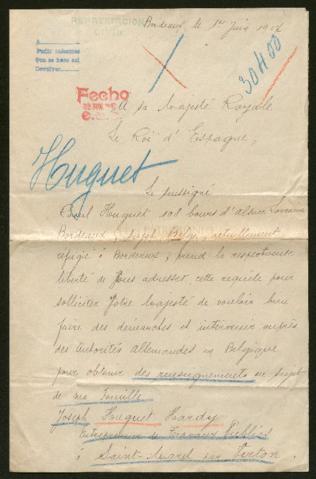 REPRESENTACION
CIVIL
A
Pedir informes
Que se hace así
Devolver
Bordeaux le 1er Juin 19
30400
Fecho
A sa Majesté Royale
Le Roi d'Espagne,
Huguet
Le soussigné
Huguet 201 cours d'Alsace Lorraine
Bordeaux, sujet Belge, actuellement
réfugié à Bordeaux, prend la respectueuse
liberté de Vous adresser cette requête pour
solliciter Votre Majesté de vouloir bien
faire des démarches et intervenir auprès
des autorités allemandes en Belgique
pour obtenir des renseignements au sujet
de ma famille
Joseph Huguet Hardy
Entrepreneur de Travaux Publics
à Saint-Mard sur Virton.